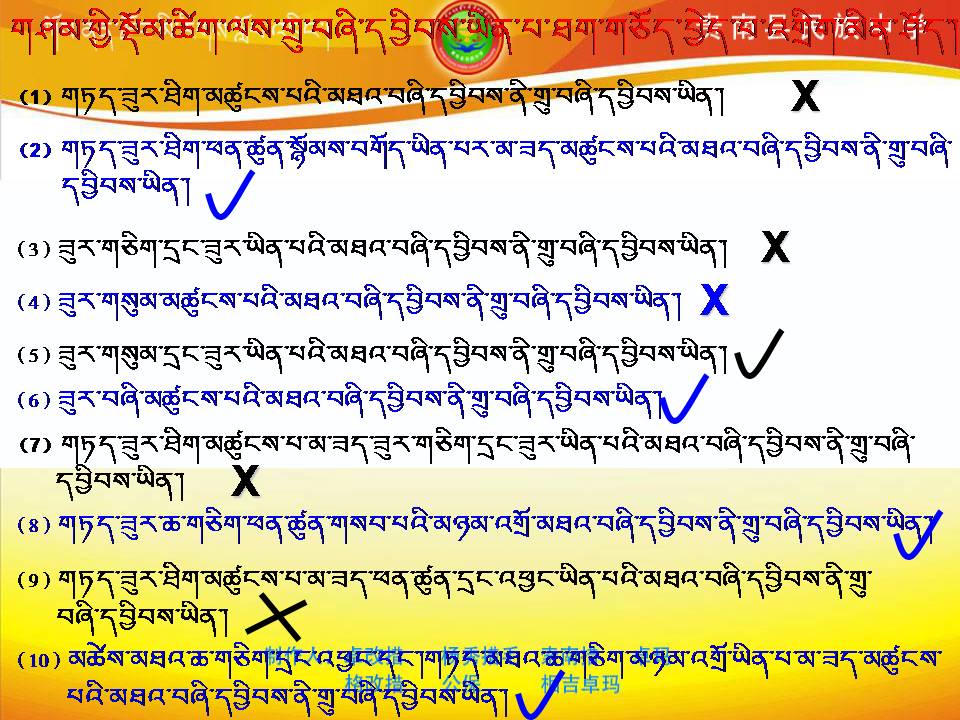 གཤམ་གྱི་སྡོམ་ཚིག་ལས་གྲུ་བཞི་དབྱིབས་ཡིན་པ་ཐག་གཅོད་བྱེད་པ་འགྲིག་མིན་ཤོད།
(1) གཏད་ཟུར་ཐིག་མཚུངས་པའི་མཐའ་བཞི་དབྱིབས་ནི་གྲུ་བཞི་དབྱིབས་ཡིན། X
(2) གཏད་ཟུར་ཐིག་ཕན་ཚུན་སྙོམས་བགོད་ཡིན་པར་མ་ཟད་མཚུངས་པའི་མཐའ་བཞི་དབྱིབས་ནི་གྲུ་བཞི་
དབྱིབས་ཡིན། ✓
(3) ཟུར་གཅིག་དྲང་ཟུར་ཡིན་པའི་མཐའ་བཞི་དབྱིབས་ནི་གྲུ་བཞི་དབྱིབས་ཡིན། X
(4) ཟུར་གསུམ་མཚུངས་པའི་མཐའ་བཞི་དབྱིབས་ནི་གྲུ་བཞི་དབྱིབས་ཡིན། X
(5) ཟུར་གསུམ་དྲང་ཟུར་ཡིན་པའི་མཐའ་བཞི་དབྱིབས་ནི་གྲུ་བཞི་དབྱིབས་ཡིན། ✓
(6) ཟུར་བཞི་མཚུངས་པའི་མཐའ་བཞི་དབྱིབས་ནི་གྲུ་བཞི་དབྱིབས་ཡིན། ✓
(7) གཏད་ཟུར་ཐིག་མཚུངས་པ་མ་ཟད་ཟུར་གཅིག་དྲང་ཟུར་ཡིན་པའི་མཐའ་བཞི་དབྱིབས་ནི་གྲུ་བཞི་
དབྱིབས་ཡིན། X
(8) གཏད་ཟུར་ཆ་གཅིག་ཕན་ཚུན་གསབ་པའི་མཉམ་འགྲོ་མཐའ་བཞི་དབྱིབས་ནི་གྲུ་བཞི་དབྱིབས་ཡིན། ✓
(9) གཏད་ཟུར་ཐིག་མཚུངས་པ་མ་ཟད་ཕན་ཚུན་དྲང་འཕྱང་ཡིན་པའི་མཐའ་བཞི་དབྱིབས་ནི་གྲུ་
བཞི་དབྱིབས་ཡིན། ✕
(10) མཚེས་མཐའ་ཆ་གཅིག་དྲང་འཕྱང་དང་།གཏད་མཐའ་ཆ་གཅིག་མཉམ་འགྲོ་ཡིན་པ་མ་ཟད་མཚུངས་
པའི་མཐའ་བཞི་དབྱིབས་ནི་གྲུ་བཞི་དབྱིབས་ཡིན། ✓
格改措 相吉卓玛